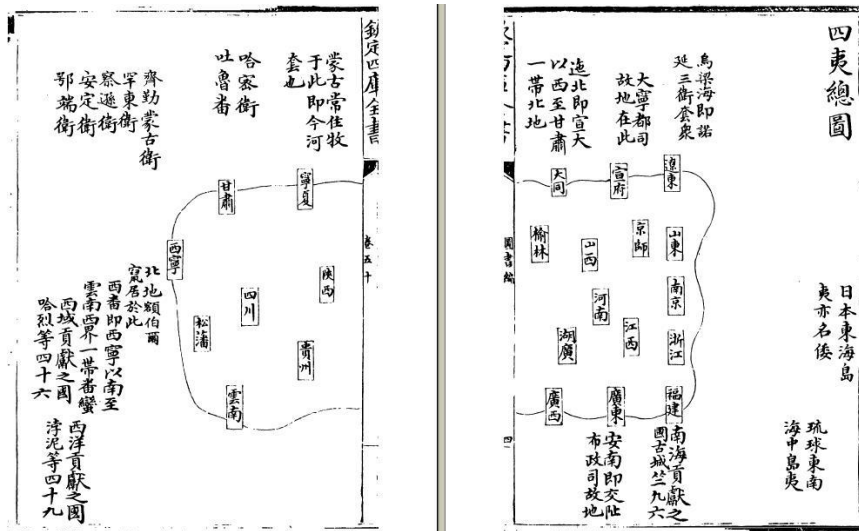 四夷總圖
日本東海島
夷亦名倭
琉球東南
海中島夷
烏梁海即諾
延三衛套衆
大寧都司
故地在此
迤北即宣大
以西至甘肅
一帶北地
遼東
宣府
大同
山東
京師
山西
榆林
南京
河南
浙江
江西
湖廣
福建
廣東
廣西
南海貢獻之
安南即交阯
布政司故地
圖書編
欽定四庫全書
卷五十
蒙古常住牧
于此即今河
套也
哈密衛
吐魯番
齊勤蒙古衛
罕東衛
察遜衛
安定衛
鄂端衛
寧夏
甘肅
西寧
陝西
四川
松藩
貴州
雲南
北地額伯爾
竄居於此
西番即西寧以南至
雲南西界一帶番蠻
西域貢獻之國
哈烈等四十六
西洋貢獻之國
浡泥等四十九